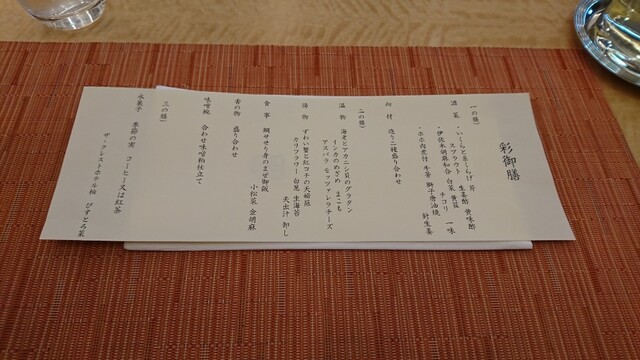 彩御膳
一の膳)
酒菜 ・いくらと糸くらげ 芹
スプラウト 生姜酢 黄味酢
・伊佐木胡麻和合 白菜 黄韮 一味
チコリ
・ホホ肉煮付 牛蒡 獅子唐油焼
針生姜
向付 造り二種盛り合わせ
二の膳)
温物 海老とアカニシ貝のグラタン
インカのめざめ まこも
アスパラ モッツァレラチーズ
揚物 ずわい蟹と紅コチの天婦羅
カリフラワー 白葱 生海苔
天出汁 卸し
食事 鯛せせり身のまぜ御飯
小松菜 金胡麻
香の物 盛り合わせ
味噌椀 合わせ味噌粕仕立て
三の膳)
水菓子 季節の実 コーヒー又は紅茶
ザ・クレストホテル柏 びすとろ菜